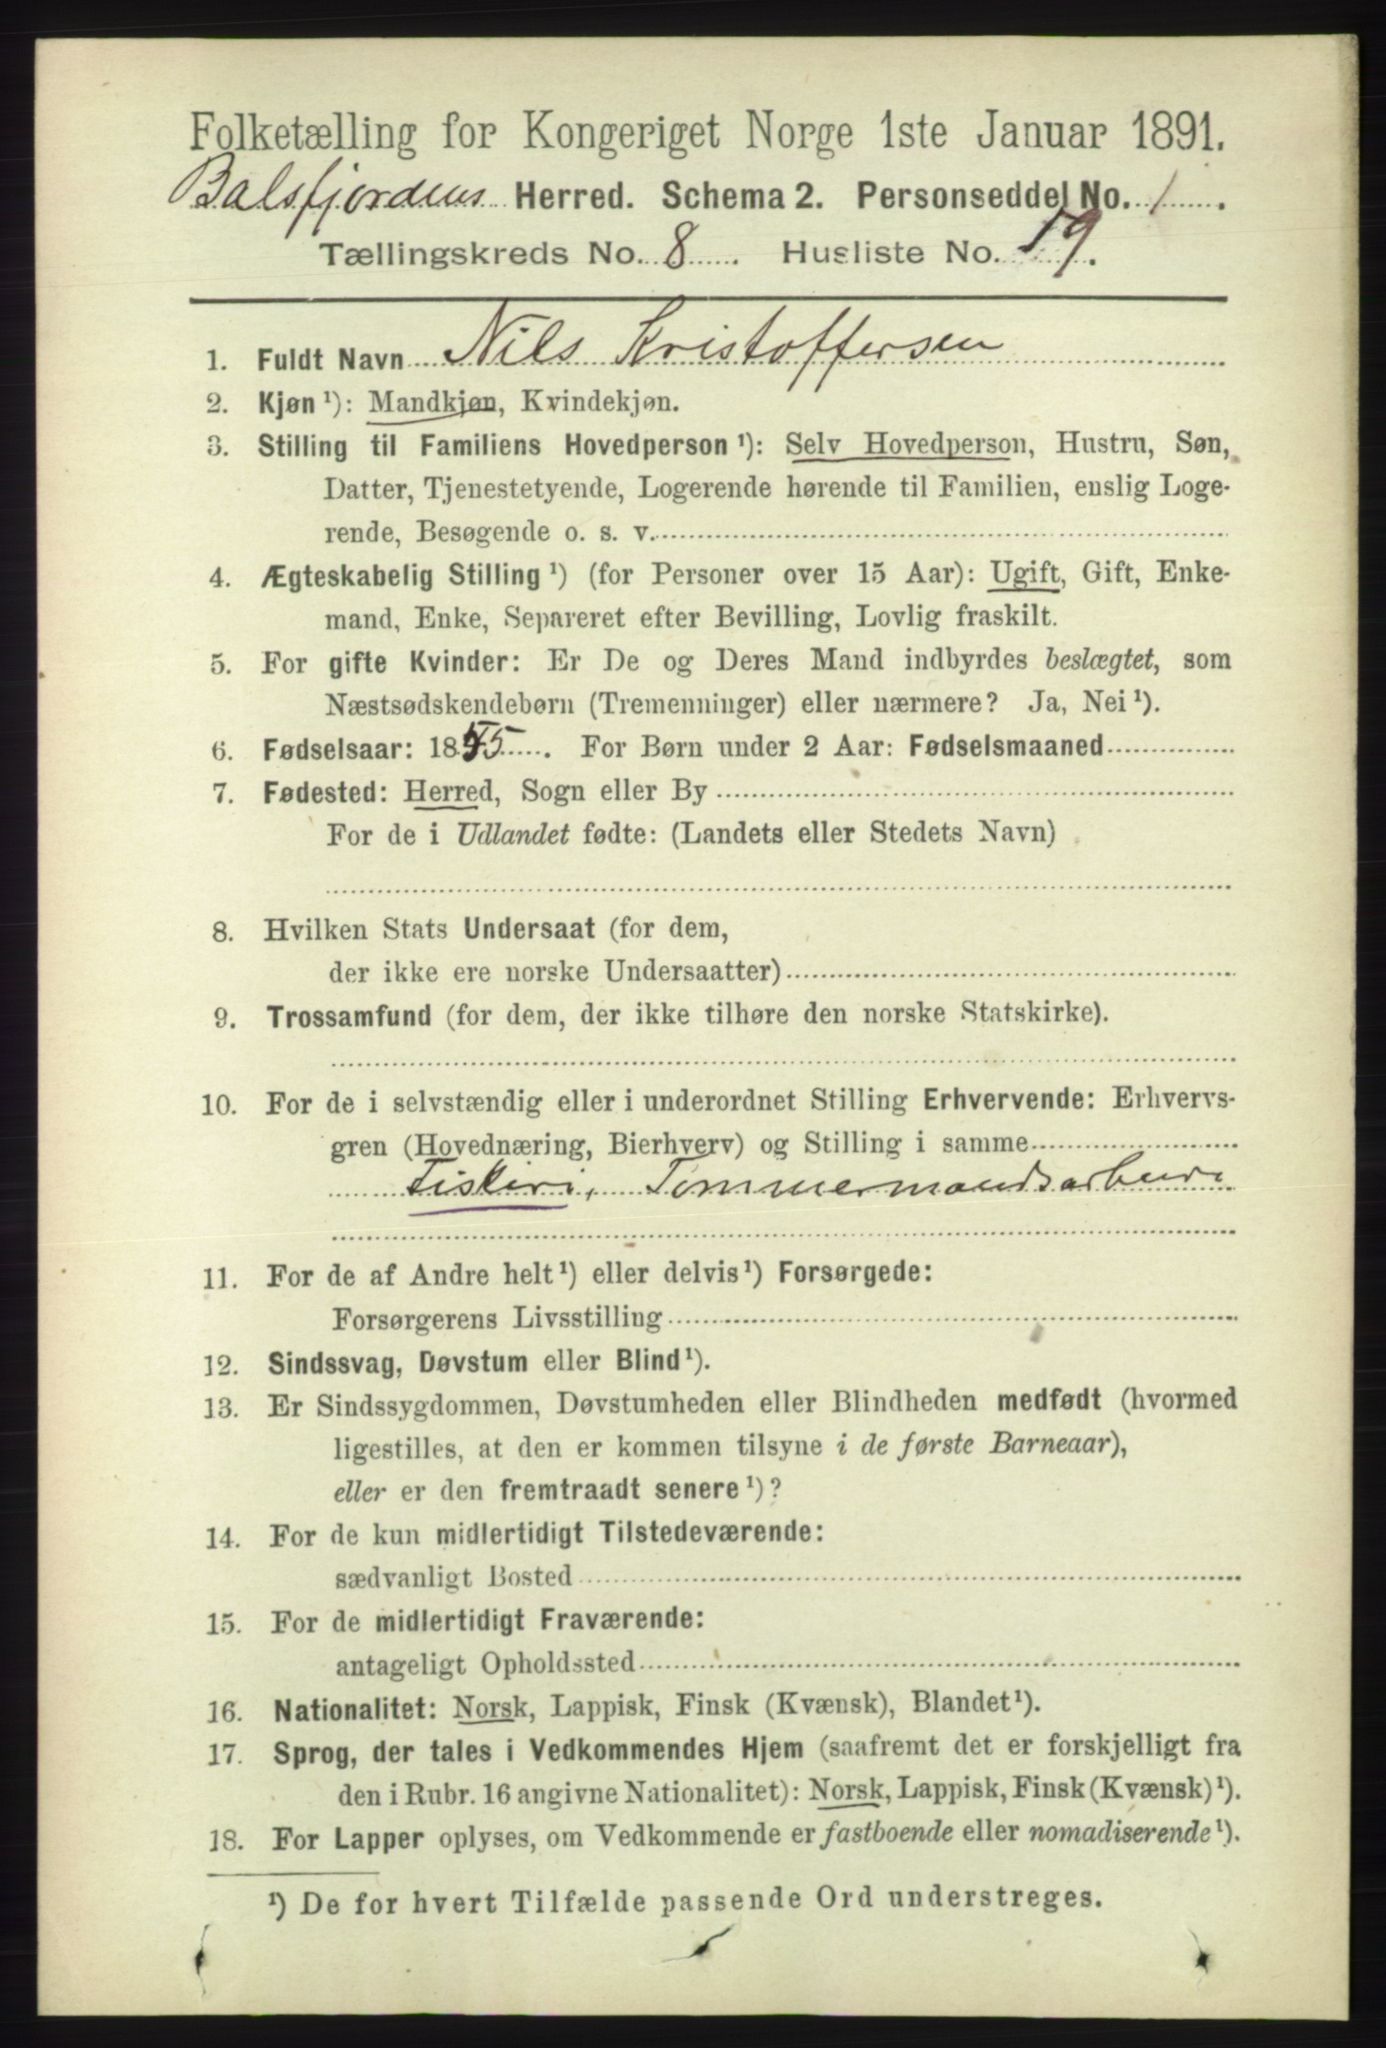 Folketælling for Kongeriget Norge 1ste Januar 1891.
Balsfjordens Herred. Schema 2. Personseddel No. 1.
Tællingskreds No. 8. Husliste No. 19.
1. Fuldt Navn Nils Kristoffersen
2. Kjøn ¹): Mandkjøn, Kvindekjøn.
3. Stilling til Familiens Hovedperson ¹): Selv Hovedperson, Hustru, Søn,
Datter, Tjenestetyende, Logerende hørende til Familien, enslig Loge-
rende, Besøgende o. s. v.
4. Ægteskabelig Stilling ¹) (for Personer over 15 Aar): Ugift, Gift, Enke-
mand, Enke, Separeret efter Bevilling, Lovlig fraskilt.
5. For gifte Kvinder: Er De og Deres Mand indbyrdes beslægtet, som
Næstsødskendebørn (Tremenninger) eller nærmere? Ja, Nei ¹).
6. Fødselsaar: 1855. For Børn under 2 Aar: Fødselsmaaned
7. Fødested: Herred, Sogn eller By
For de i Udlandet fødte: (Landets eller Stedets Navn)
8. Hvilken Stats Undersaat (for dem,
der ikke ere norske Undersaatter)
9. Trossamfund (for dem, der ikke tilhøre den norske Statskirke).
10. For de i selvstændig eller i underordnet Stilling Erhvervende: Erhvervs-
gren (Hovednæring, Bierhverv) og Stilling i samme
Fiskeri, Tømmermandsarbeide
11. For de af Andre helt ¹) eller delvis ¹) Forsørgede:
Forsørgerens Livsstilling
12. Sindssvag, Døvstum eller Blind ¹).
13. Er Sindssygdommen, Døvstumheden eller Blindheden medfødt (hvormed
ligestilles, at den er kommen tilsyne i de første Barneaar),
eller er den fremtraadt senere ¹)?
14. For de kun midlertidigt Tilstedeværende:
sædvanligt Bosted
15. For de midlertidigt Fraværende:
antageligt Opholdssted
16. Nationalitet: Norsk, Lappisk, Finsk (Kvænsk), Blandet ¹).
17. Sprog, der tales i Vedkommendes Hjem (saafremt det er forskjelligt fra
den i Rubr. 16 angivne Nationalitet): Norsk, Lappisk, Finsk (Kvænsk) ¹).
18. For Lapper oplyses, om Vedkommende er fastboende eller nomadiserende ¹).
¹) De for hvert Tilfælde passende Ord understreges.